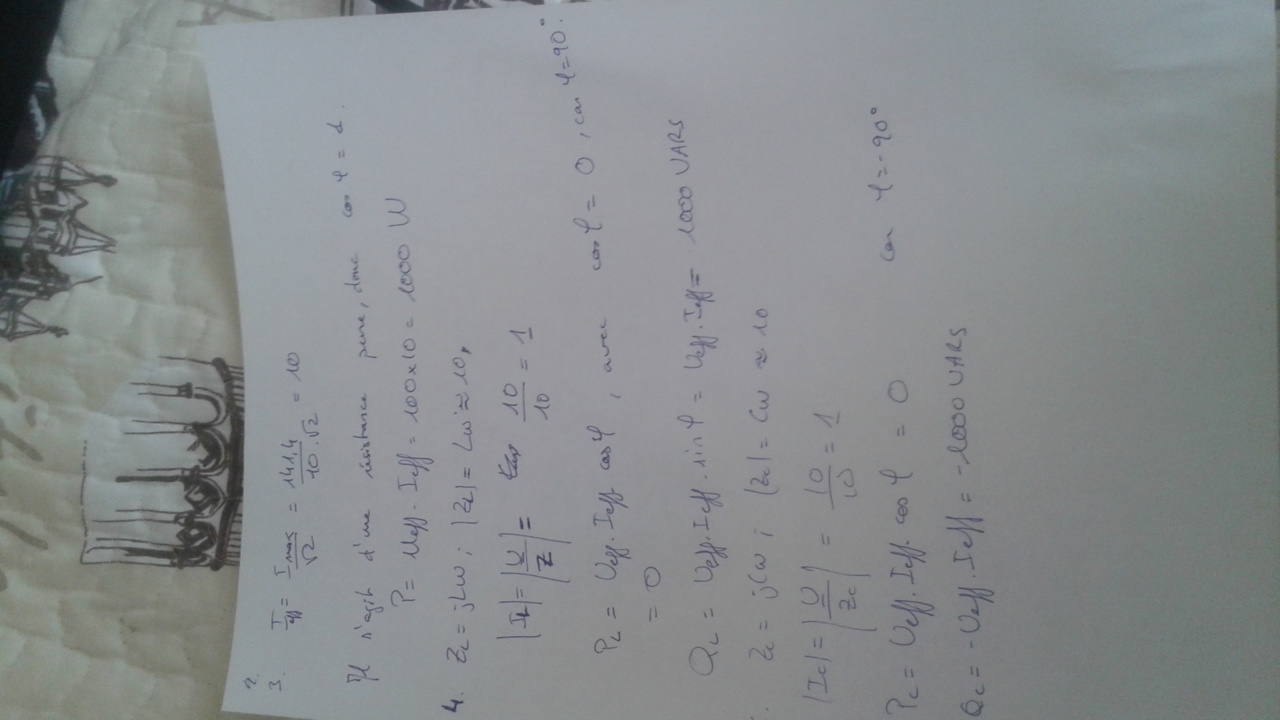 2.
3. Ieff = Imax/√2 = 141,4/10.√2 = 10
Il s'agit d'une résistance pure, donc cos φ = 1.
P = Ueff. Ieff = 100x10 = 1000 W
4. ZL = jLω ; |ZL| = Lω ≈ 10,
|IL| = |U/Z| = 10/10 = 1
PL = Ueff. Ieff cos φ , avec cos φ = 0 , car φ = 90°.
= 0
QL = Ueff. Ieff. sin φ = Ueff. Ieff = 1000 VARS
Zc = jCω ; |Zc| = Cω ≈ 10
|Ic| = |U/Zc| = 10/10 = 1
Pc = Ueff. Ieff. cos φ = 0 car φ = -90°
Qc = - Ueff. Ieff = -1000 VARS